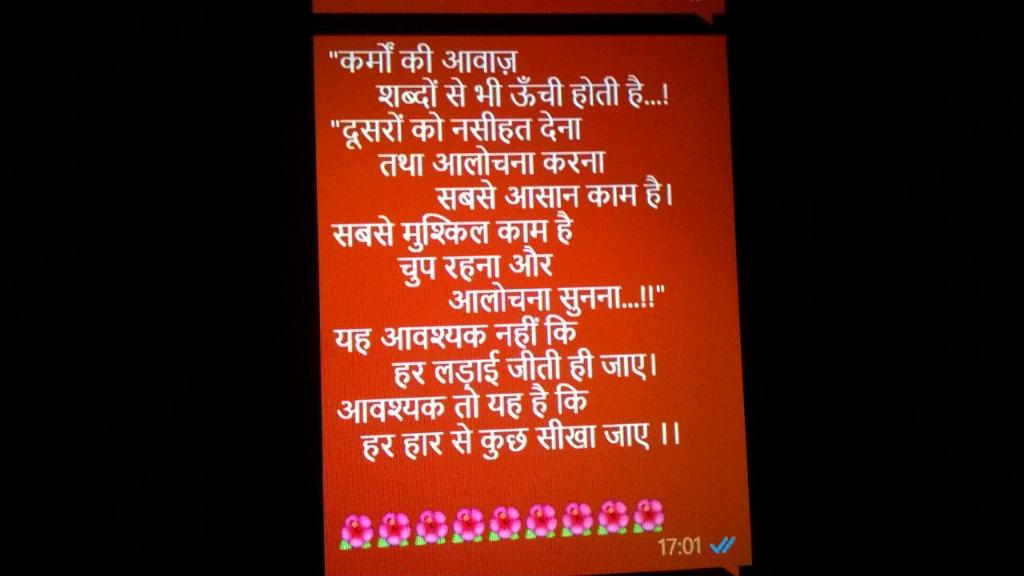 "कर्मों की आवाज़
शब्दों से भी ऊँची होती है...!
"दूसरों को नसीहत देना
तथा आलोचना करना
सबसे आसान काम है।
सबसे मुश्किल काम है
चुप रहना और
आलोचना सुनना...!!"
यह आवश्यक नहीं कि
हर लड़ाई जीती ही जाए।
आवश्यक तो यह है कि
हर हार से कुछ सीखा जाए ।।
17:01